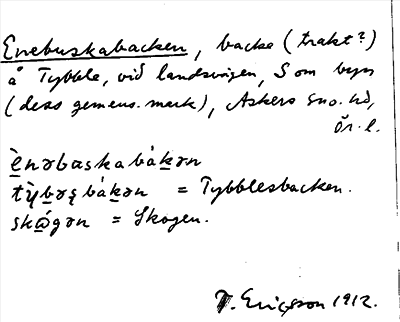 Enebuskabacken, backe (trakt?)
å Tybble, vid landsvägen, S om byn
(dess gemens. mark), Askers sn o. hd,
Ör. l.
ènəbuskabákən
tỳbəs̨bákən = Tybblesbacken.
skógən = Skogen.
J. Ericsson 1912.